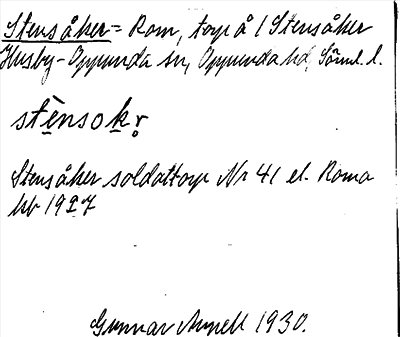 Stensåker = Rom, torp å 1 Stensåker
Husby-Oppunda sn, Oppunda hd, Söml. l.
stènsokr̥
Stensåker soldattorp Nr 41 el. Roma
hfb 1927
Gunnar 1930.